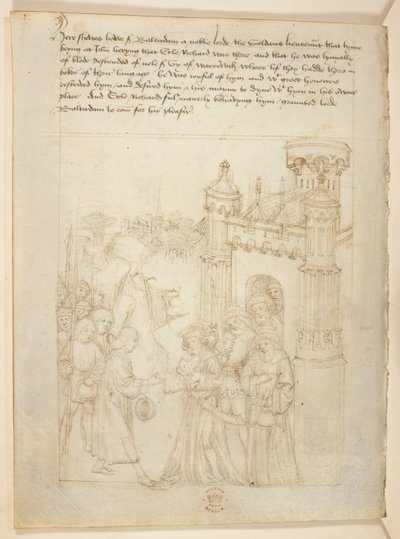 Here shewes howe s Baltirdam a noble lorde the Soldans lieutenant that tyme
beyng at Jrlm heryng that Erle Richard was there and that he was lynyally
of blode descended of noble s Gy of Warrewik whoes lif they hadde there in
bokes of their langage he was joyful of hym and wt greet honoure
resceved hym and desired hym & his mayny to dyne wt hym in his owne
place And Erle Richard ful manerly behavyng hym graunted lorde
Baltirdam to com for his pleasir
BRITISH
MUSEUM